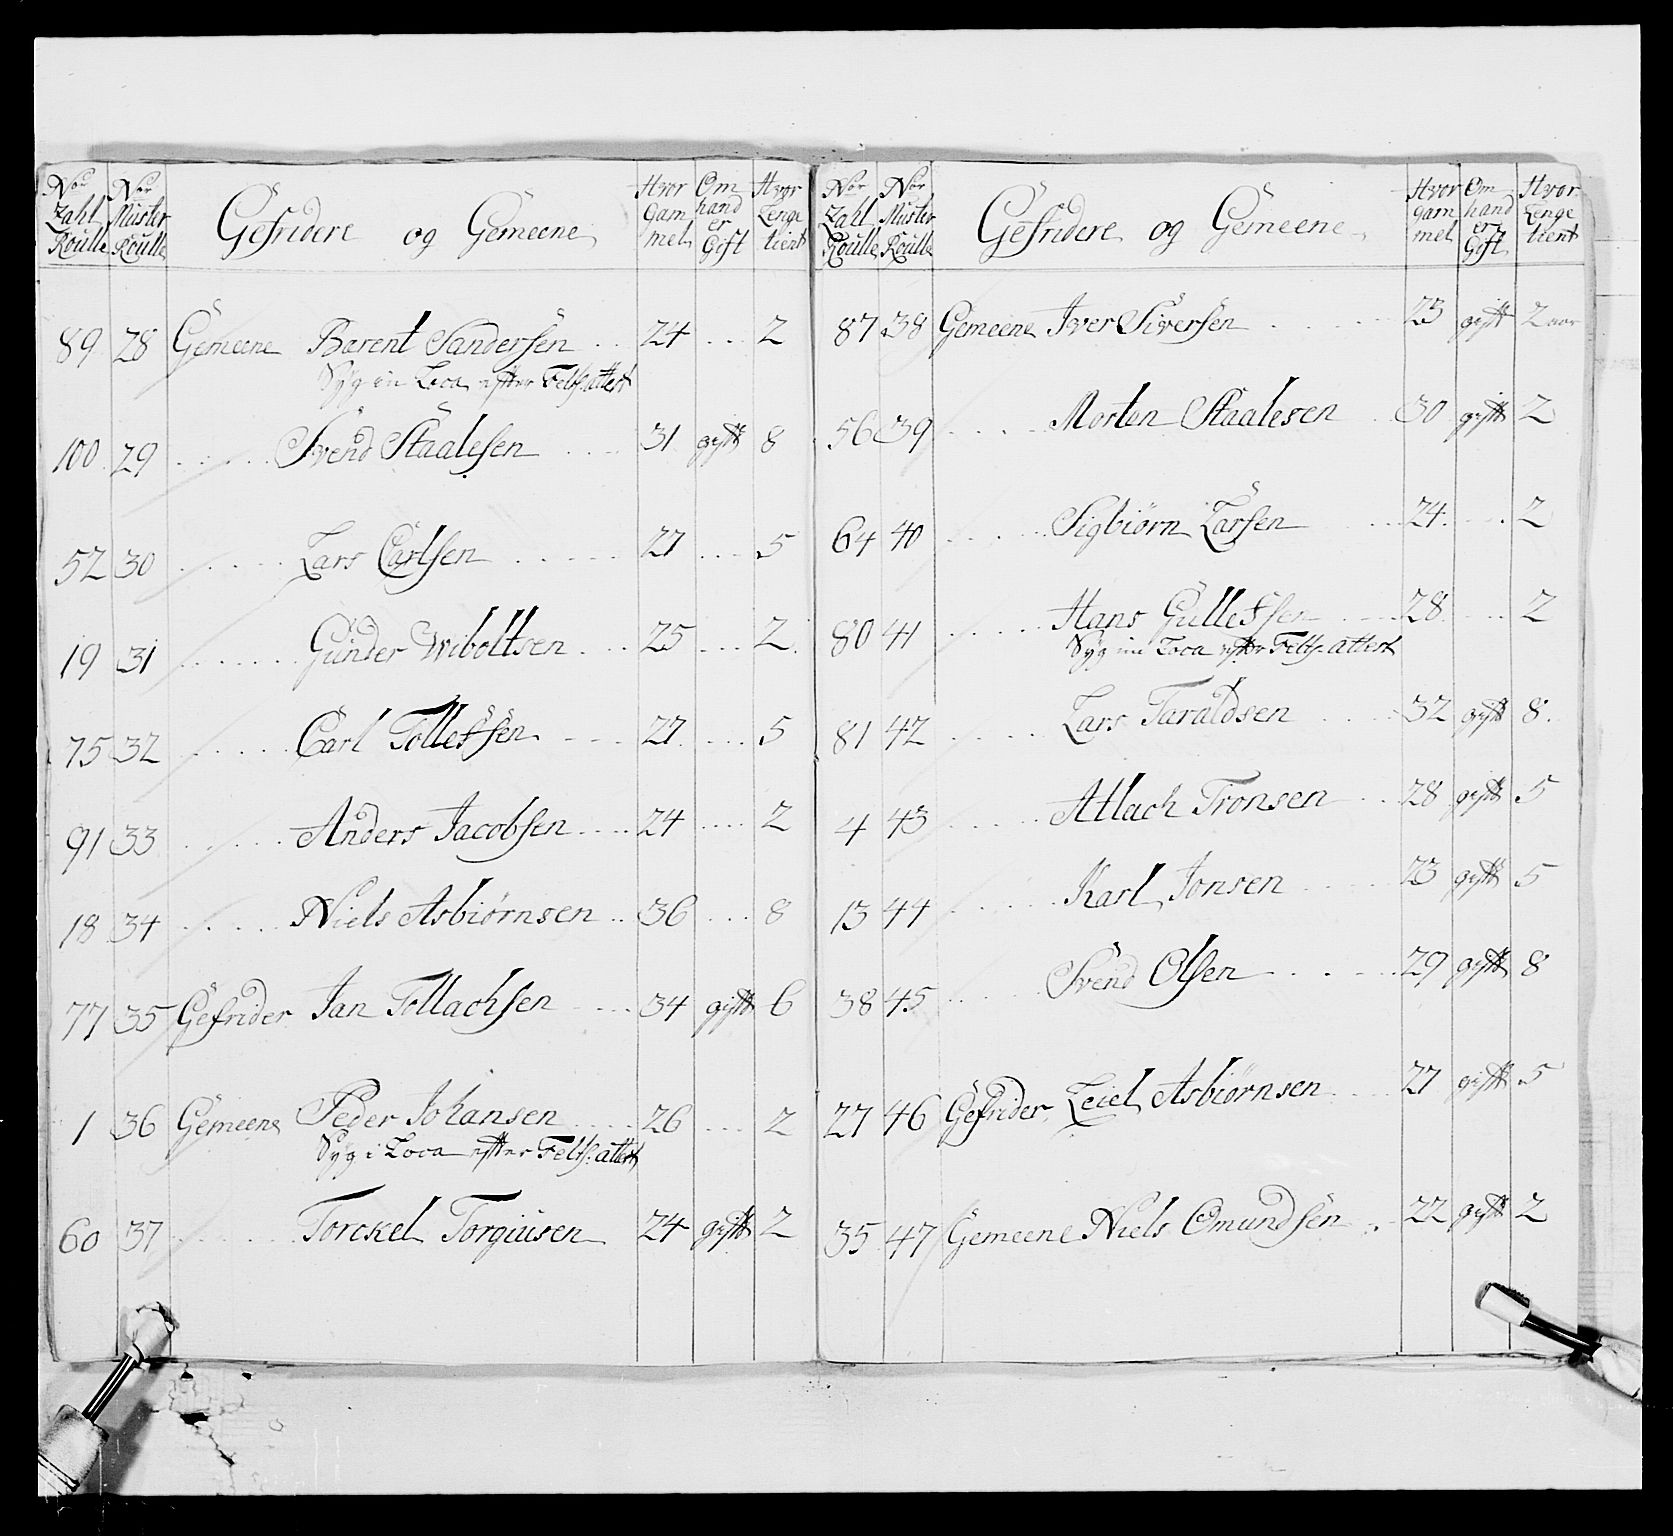 Nor Zahl Roulle Nor Muster Roulle Gefridere og Gemeene Hvor Gammel Om hand er Gift Hvor Lenge tient
89 28 Gemeene Barent Sandersen 24 ... 2
Syg in Loca efter Feltsk: attest
100 29 ..... Svend Staalesen 31 gift 8
52 30 ..... Lars Carlsen ..... 27 .... 5
19 31 ...... Gunder Wiboltsen ... 25 .... 2
75 32 ...... Carl Tollefsen .... 27 .... 5
91 33 ..... Anders Jacobsen .... 24 .... 2
18 34 ..... Niels Asbiørnsen .. 36 ... 8
77 35 Gefrider Jan Tollachsen .... 34 gift 6
1 36 Gemeene Peder Johansen .... 26 .... 2
Syg i Loca efter Feltsk: attest
60 37 ..... Torckel Torgiusen 24 gift 2
Nor Zahl Roulle Nor Muster Roulle Gefridere og Gemeene Hvor gammel Om hand er Gift Hvor Lenge tient
87 38 Gemeene Iver Siversen ..... 23 gift 2 aar
56 39 .... Morten Staalesen . 30 gift 2
64 40 ..... Sigbiørn Larsen .... 24 .... 2
80 41 ..... Hans Gullefsen .... 28 .... 2
Syg in Loca efter Feltsk: attest
81 42 ..... Lars Taraldsen .... 32 gift 8
4 43 ..... Atlach Tronsen .. 28 gift 5
13 44 ..... Karl Jonsen .... 23 gift 5
38 45 .... Svend Olsen ..... 29 gift 8
27 46 Gefrider Leiel Asbiørnsen .... 27 gift 5
35 47 Gemeene Niels Omundsen .. 22 gift 2